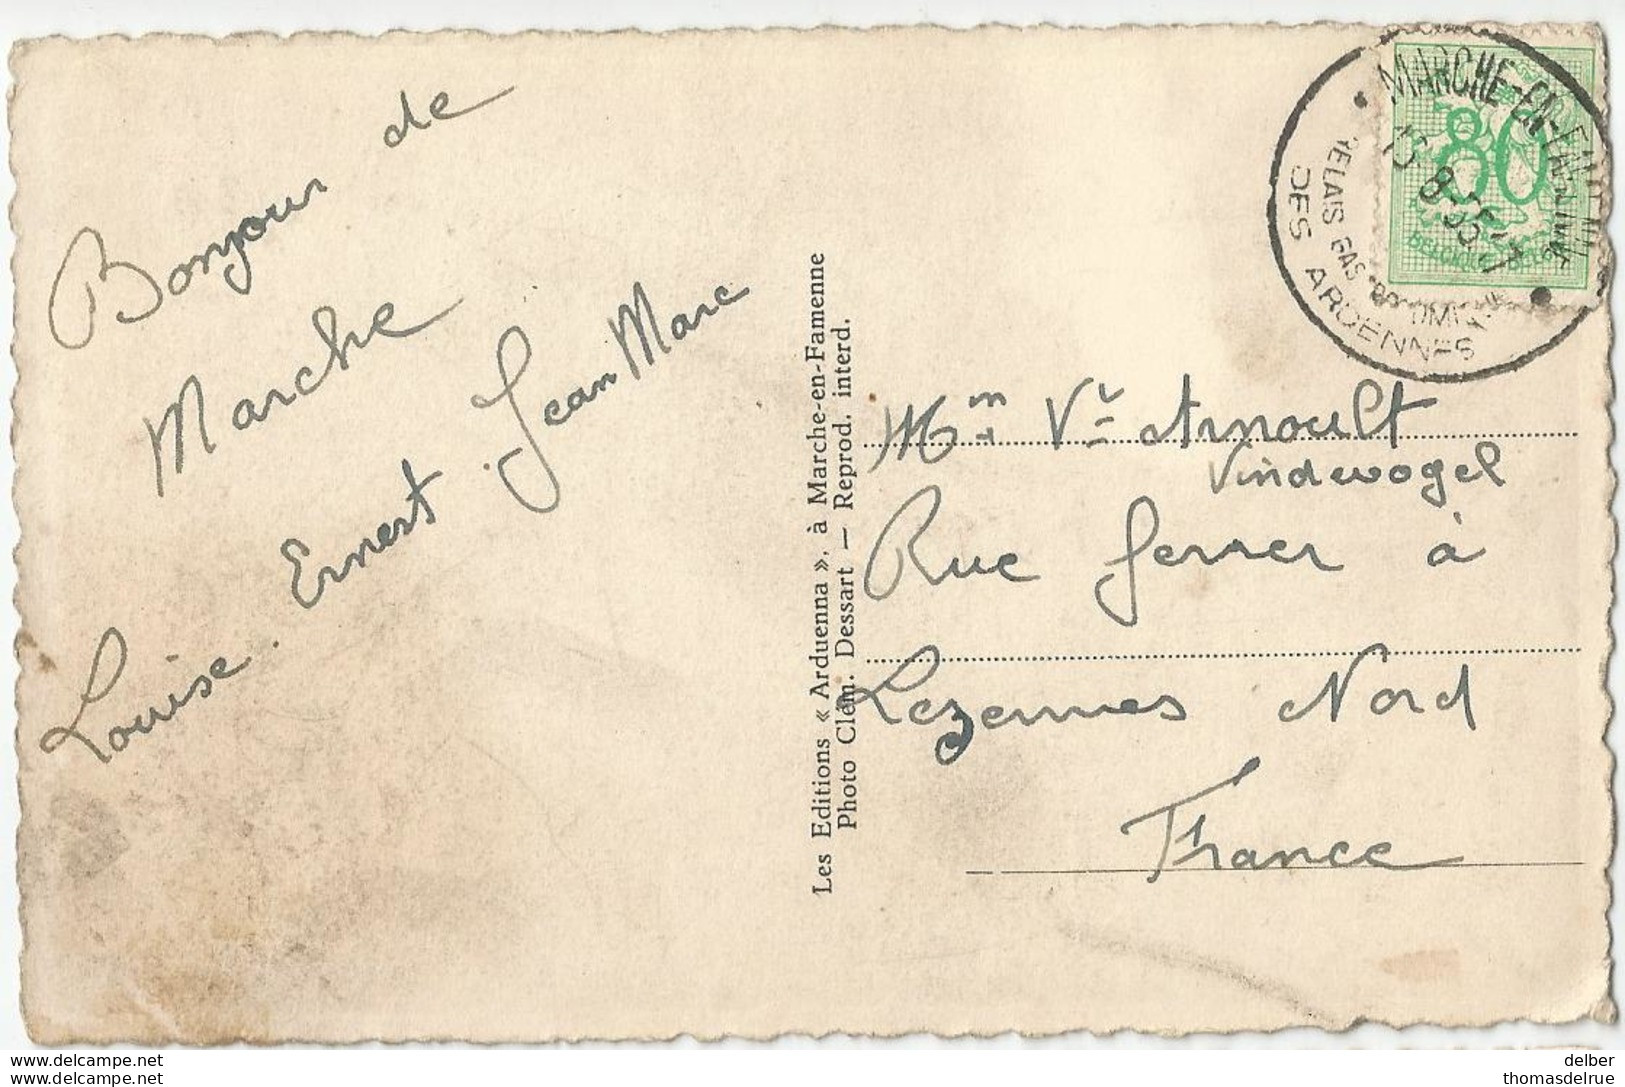 Bonjour de
Marche
Louise. Ernest. Jean Marc
Les Editions « Arduenna », à Marche-en-Famenne
Photo Clém. Dessart — Reprod. interd.
MARCHE-EN-
8-55
RELAIS GASTRONOMIQUE
DES ARDENNES
80
BELGIQUE BELGIE
Mme Ve Arnoult
Vindevogel
Rue Ferrer à
Lezennes Nord
France
delber
https://www.delcampe.net
thomasdelrue